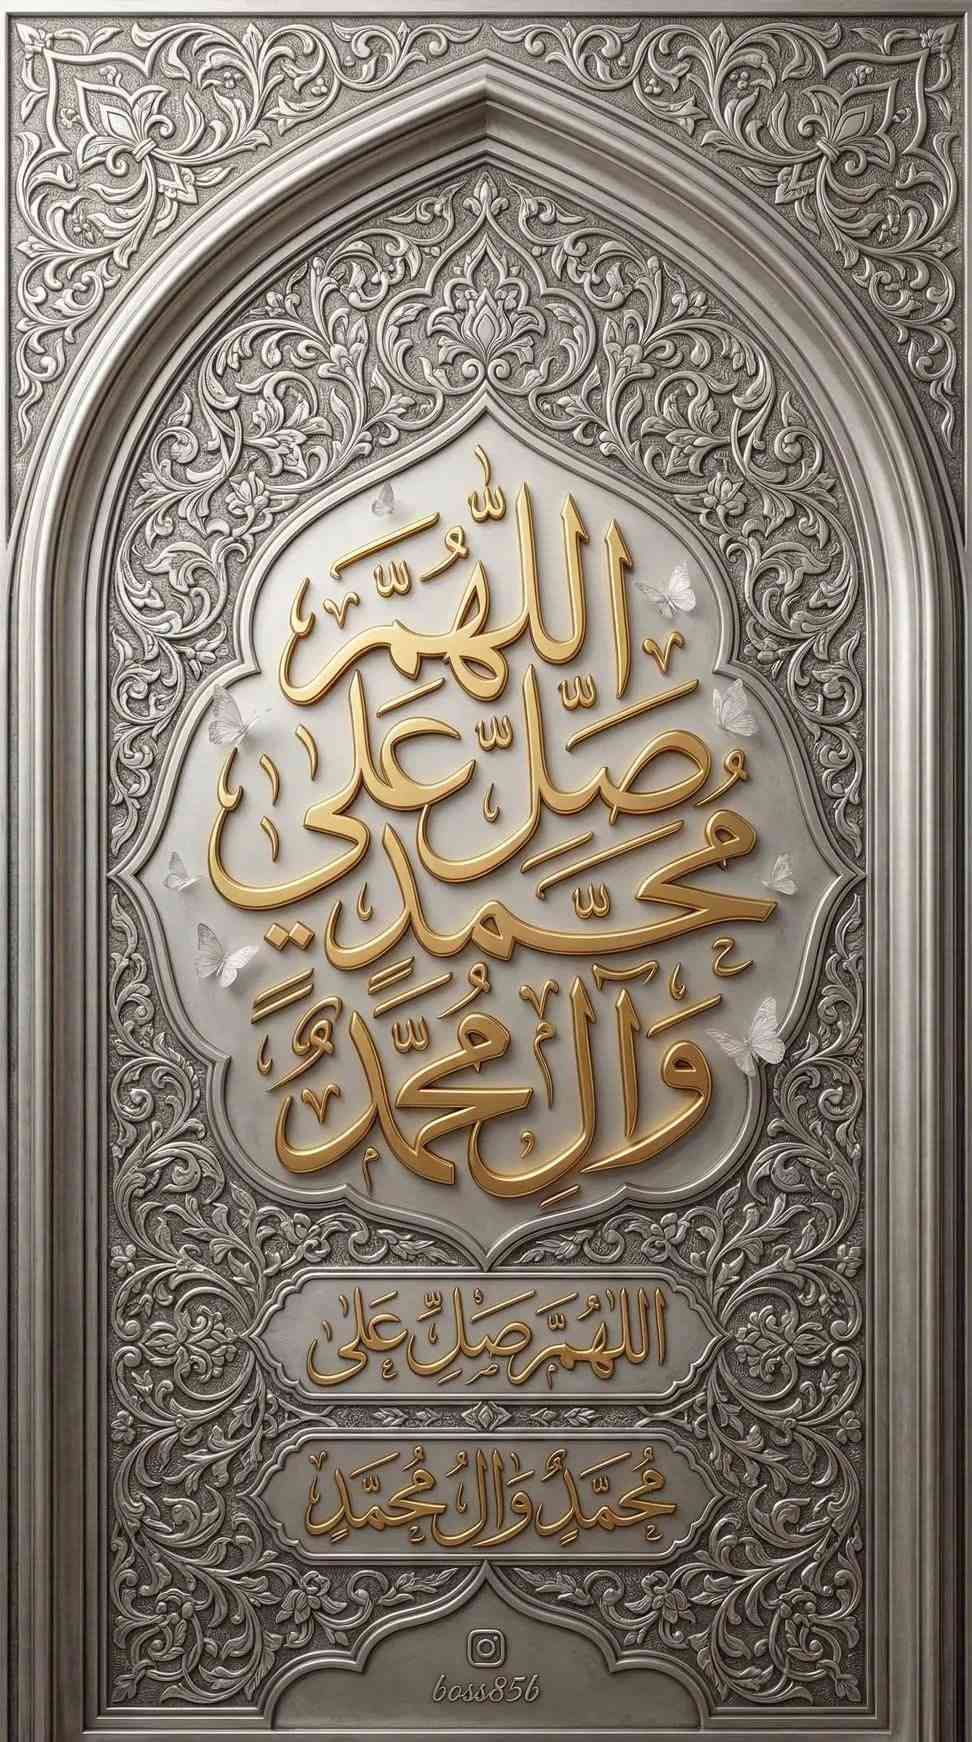 اللّهُمَّ
صَلِّ عَلى
مُحَمَّدٍ
وَآلِ مُحَمَّدٍ
اللّهُمَّ صَلِّ عَلى
مُحَمَّدٍ وَالُ مُحَمَّدٍ
boss85b